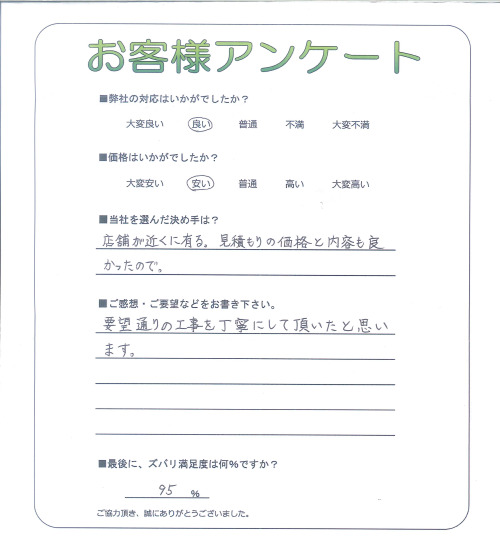 お客様アンケート
■弊社の対応はいかがでしたか？
大変良い 良い 普通 不満 大変不満
■価格はいかがでしたか？
大変安い 安い 普通 高い 大変高い
■当社を選んだ決め手は？
店舗が近くに有る。見積もりの価格と内容も良
かったので。
■ご感想・ご要望などをお書き下さい。
要望通りの工事を丁寧にして頂いたと思い
ます。
■最後に、ズバリ満足度は何%ですか？
95 %
ご協力頂き、誠にありがとうございました。